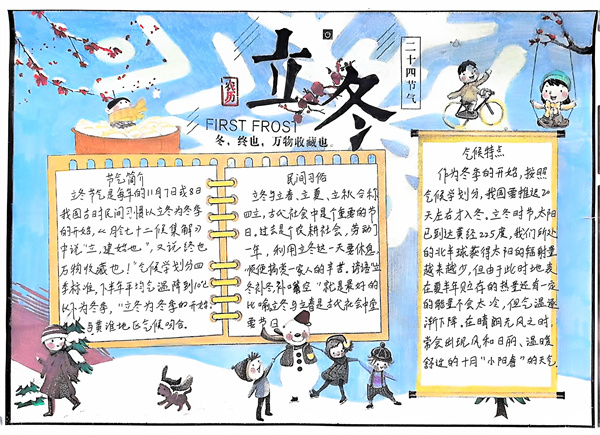 立冬
农历
二十四节气
FIRST FROST
冬，终也，万物收藏也
节气简介
立冬节气是每年的11月7日或8日
我国古时民间习惯以立冬为冬季
的开始，《月令七十二候集解》
中说"立，建始也"，又说：终也
万物收藏也！"气候学划分四
季标准，下半年平均气温降到10℃
以下为冬季，"立冬为冬季的开始
与黄淮地区气候吻合。
民间习俗
立冬与立春、立夏、立秋合称
四立，古代社会中是个重要的节
日，过去是个农耕社会，劳动了
一年，利用立冬这一天要休息，
便犒赏一家人的辛苦。谚语"立
冬补冬，补嘴空"就是最好的
比喻立冬与立春是古代社会中
重节日
气候特点
作为冬季的开始，按照
气候学划分，我国需推迟20
天左右才入冬，立冬时节，太阳
已到达黄经225度，我们所处
的北半球获得太阳的辐射量
越来越少，但由于此时地表
在夏半年贮存的热量还有一定
的能量不会太冷，但气温逐
渐下降，在晴朗无风之时，
常会出现风和日丽、温暖
舒适的十月"小阳春"的天气，